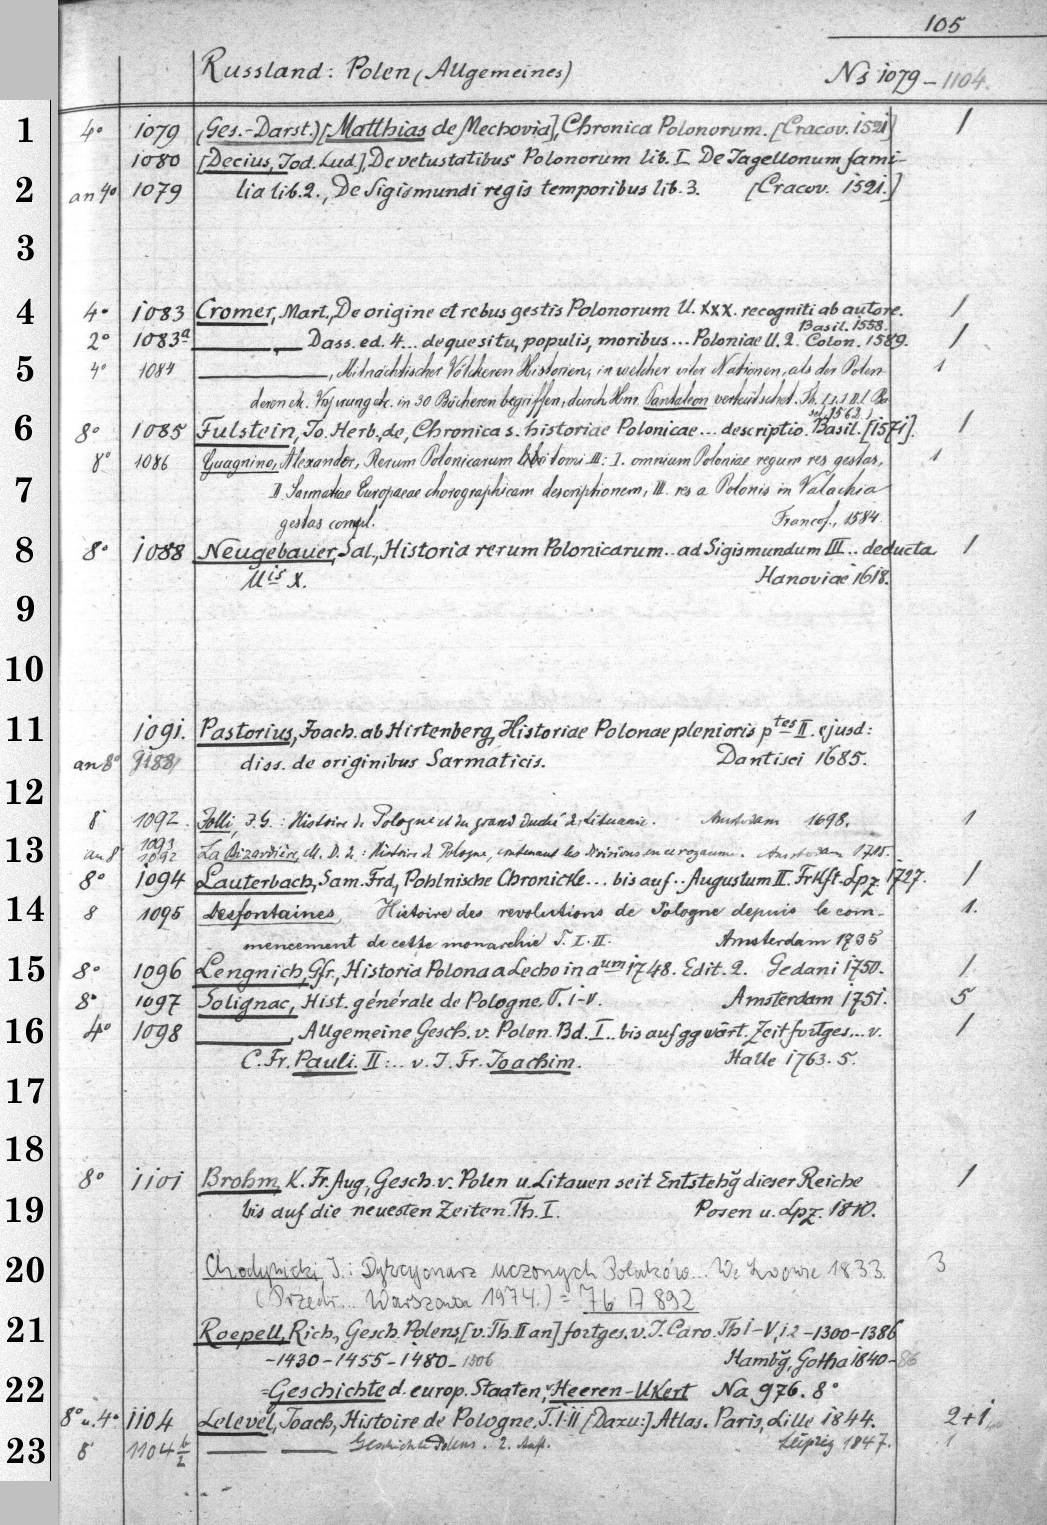 105
Russland: Polen (Allgemeines) Nś 1079 - 1104.
1 4° 1079 (Ges.-Darst.) [Matthias de Mechovia], Chronica Polonorum. [Cracov. 1521] 1
1080 [Decius, Jod. Lud.], De vetustatibus Polonorum lib. I De Jagellonum fami-
2 an 4° 1079 lia lib. 2., De Sigismundi regis temporibus lib. 3. [Cracov. 1521.]
3
4 4° 1083 Cromer, Mart., De origine et rebus gestis Polonorum ll. XXX. recogniti ab autore. 1
Basil. 1558.
2° 1083a ———, — Dass. ed. 4... deque situ, populis, moribus... Poloniae ll. 2. Colon. 1589. 1
5 4° 1084 ———, Mitnächtischer Völckeren Historien, in welcher viler Nationen, als der Polen
1
deren etc. Vrsprung etc. in 30 Bücheren begriffen, durch Hnr. Pantaleon verteütschet. Th. I. II. Ba
sel 1562.
6 8° 1085 Fulstein, Jo. Herb. de, Chronica s. historiae Polonicae... descriptio. Basil. [1571]. 1
8° 1086 Guagnino, Alexander, Rerum Polonicarum tomi III: I. omnium Poloniae regum res gestas, 1
7 II Sarmatiae Europaeae chorographicam descriptionem, III. res a Polonis in Valachia
gestas compl. Francof., 1584
8 8° 1088 Neugebauer, Sal., Historia rerum Polonicarum.. ad Sigismundum III.. deducta 1
llis X. Hanoviae 1618.
9
10
11 1091. Pastorius, Joach. ab Hirtenberg, Historiae Polonae plenioris ptes II. ejusd:
an 8° diss. de originibus Sarmaticis. Dantisci 1685.
12
8° 1092. Jolli, J. G.: Histoire de Pologne et du grand duché de Lituanie. Amsterdam 1698. 1
13 an 8 1093 1092 La Bizardière, M. D. de: Histoire de Pologne, contenant les divisions en ce royaume. Amsterdam 1715.
8° 1094 Lauterbach, Sam. Frd, Pohlnische Chronicke... bis auf.. Augustum II. Frkft. Lpz. 1727. 1
14 8 1095 Desfontaines, Histoire des revolutions de Pologne depuis le com- 1.
mencement de cette monarchie T. I. II. Amsterdam 1735
15 8° 1096 Lengnich, Gfr., Historia Polona a Lecho in aum 1748. Edit. 2. Gedani 1750. 1
8° 1097 Solignac, Hist. générale de Pologne. T. I-V. Amsterdam 1751. 5
16 4° 1098 ———, Allgemeine Gesch. v. Polen. Bd. I.. bis auf ggwärt. Zeit fortges... v. 1
C. Fr. Pauli. II:.. v. J. Fr. Joachim. Halle 1763. 5.
17
18
8° 1101 Brohm, K. Fr. Aug., Gesch. v. Polen u. Litauen seit Entstehg̃ dieser Reiche 1
19 bis auf die neuesten Zeiten. Th. I. Posen u. Lpz. 1810.
20 Chodynicki, J.: Dykcyonarz uczonych Polaków... We Lwowie 1833. 3
(Przedr... Warszawa 1974.) = 76 A 892
21 Roepell, Rich, Gesch. Polens, [v. Th. II an] fortges. v. J. Caro. Th I-V, 1 2 -1300-1386
-1430-1455-1480-1506 Hambg̃, Gotha 1840-86
22 =Geschichte d. europ. Staaten, v. Heeren-Ukert Na 976. 8°
8° u. 4° 1104 Lelevel, Joach, Histoire de Pologne. T. I-II [Dazu:] Atlas. Paris, Lille 1844. 2+1
23 8 1104 b/2 —— —— Geschichte Polens. 2. Aufl. Leipzig 1847. 1